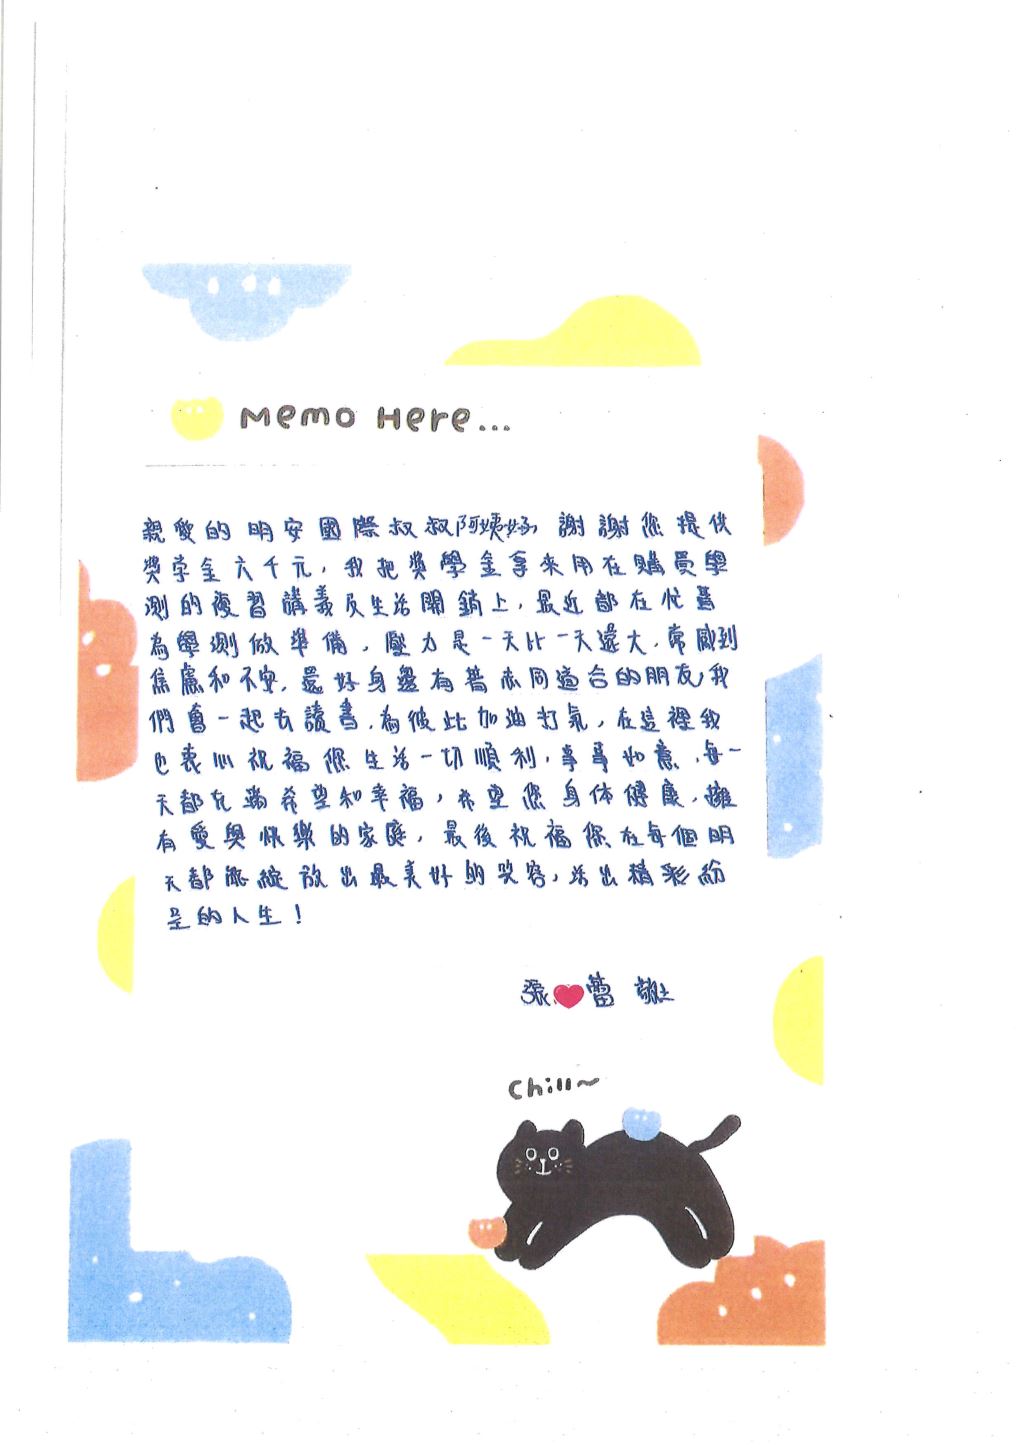 Memo Here...
親愛的明安國際叔叔阿姨好 謝謝您提供
獎学金六千元,我把獎學金拿來用在購買學
測的複習講義及生活開銷上,最近都在忙著
為學測做準備,壓力是一天比一天還大,常感到
焦慮和不安,還好身邊有普志同道合的朋友,我
們會一起去讀書,為彼此加油打氣,在這裡我
也衷心祝福您生活一切順利,事事如意,每一
天都充滿希望和幸福,希望您身体健康,擁
有愛與快樂的家庭,最後祝福您在每個明
天都能綻放出最美好的笑容,活出精彩紛
呈的人生!
張❤蕾 敬上
Chill~